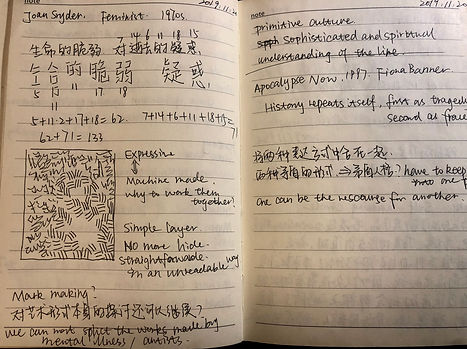 note
2019.11.20
Joan Snyder. Feminist. 1970s.
7 14 6 11 18 15
生命的脆弱 对过去的疑惑
合的脆弱 疑惑
5 11 17 18
11
5+11+2+17+18=62. 7+14+6+11+18+15=
71
62+71=133
Expressive
Machine made.
why to work them
together?
Simple layer
No more hide.
straightforwade.
in an unreadable way
Mark making?
对艺术形式本身的探讨还可以继展?
we can not split the works made by
mental illness / artists.
note
2019.11.20
primitive culture.
Sophisticated and spiritual
understanding of the line
Apocalypse Now. 1997. Fiona Banner.
History repeats itself, first as tragedy
second as frace
将两种表达方式中合在一起
两种矛盾的形式 ⇒ have to keep
one
one can be the rescource for another.